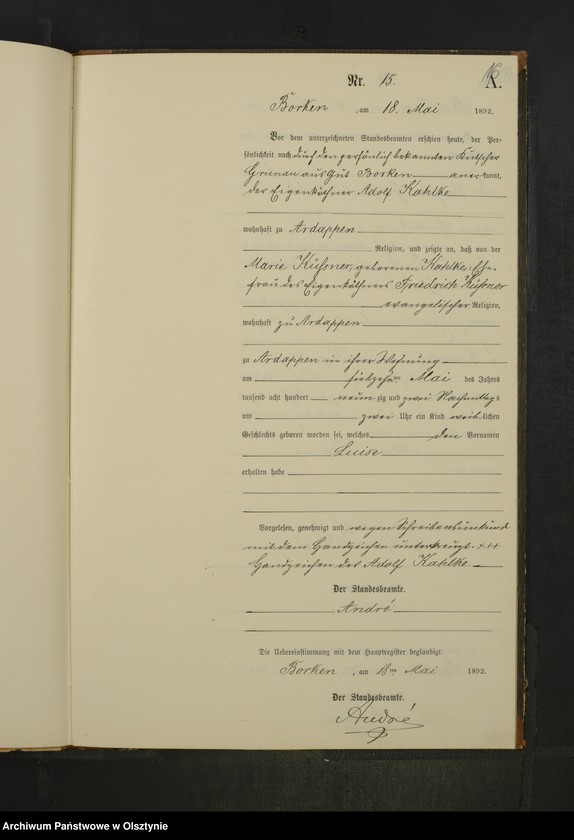 Nr. 15.
16
A.
Borken, am 18. Mai 1892.
Vor dem unterzeichneten Standesbeamten erschien heute, der Per-
sönlichkeit nach durch den persönlich bekannten Kutscher
Grunau aus Gut Borken anerkannt,
der Eigenkäthner Adolf Kahlke
wohnhaft zu Ardappen
Religion, und zeigte an, daß von der
Marie Küßner, geborenen Kahlke, Ehe-
frau des Eigenkäthners Friedrich Küßner
evangelischer Religion,
wohnhaft zu Ardappen
zu Ardappen in ihrer Wohnung
am siebzehnten Mai des Jahres
tausend acht hundert neunzig und zwei Nachmittags
um zwei Uhr ein Kind weiblichen
Geschlechts geboren worden sei, welches den Vornamen
Luise
erhalten habe
Vorgelesen, genehmigt und wegen Schreibensunkunde
mit dem Handzeichen unterkreuzt. +++
Handzeichen des Adolf Kahlke.
Der Standesbeamte.
André
Die Uebereinstimmung mit dem Hauptregister beglaubigt.
Borken, am 18ten Mai 1892.
Der Standesbeamte.
André
Archiwum Państwowe w Olsztynie